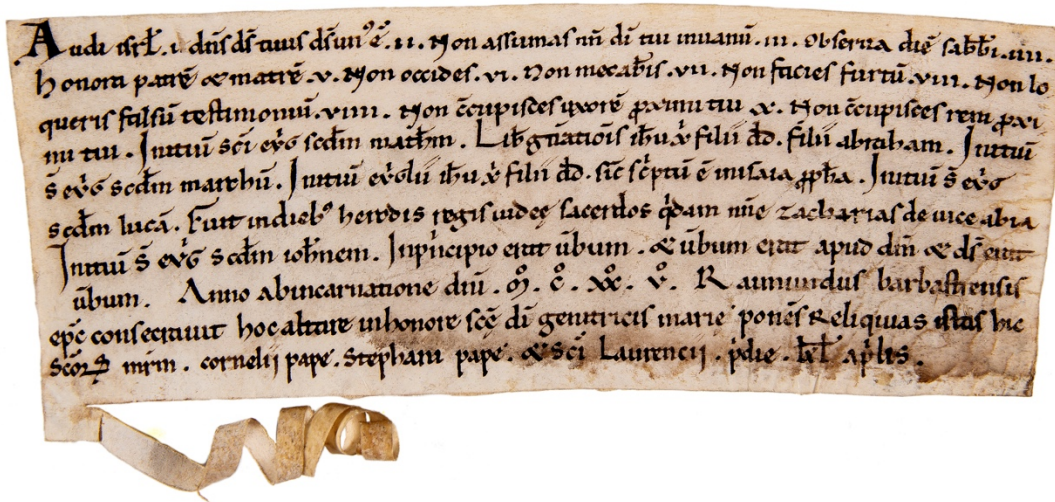 Audi isrł. i. dn̄s ds̄ tuus ds̄ un᷒ ē. ii. Non assumas nn̄ di tui inuanū. iii. Obserua diē sabb̄i. iiii.
honora patrē & matrē. v. Non occides. vi. Non mecab̄is. vii. Non facies furtū. viii. Non lo
queris falsū testimoniū. viiii. Non c̄cupisces uxorē ꝓximi tui. x. Non c̄cupisces rem ꝓxi
mi tui. Initiū sc̄i eṽg scd̄m math̄m. Lib̄ gn̄ationis ih̄u xp̄ filii dd̄. filii abraham. Initiū
s̄ eṽg scd̄m marchū. Initiū eṽglii ih̄u xp̄ filii dd̄. sic̄ sc̄ptū ē in isaia ꝓph̄a. Initiū s̄ eṽg
scd̄m lucā. Fuit indieb᷒ herodis regis iudeę sacerdos qͥdam nn̄e zacharias de uice abia
Initiū s̄ eṽg scd̄m ioh̄nem. Inpͥncipio erat ūbum. & ūbum erat apud dm̄ & ds̄ erat
ūbum. Anno abincarnatione dn̄i. ꝏ̊. c̊. xx̊. v̊. Raimundus barbastrensis
ep̄c consecrauit hoc altare inhonore sc̄ę di genitricis marie ponēs Reliquias istas hic
sc̄oꝝ mr̄m. cornelii pape. Stephani pape. & sc̄i Laurencii. pͥdie. kl̄ apͥlis.